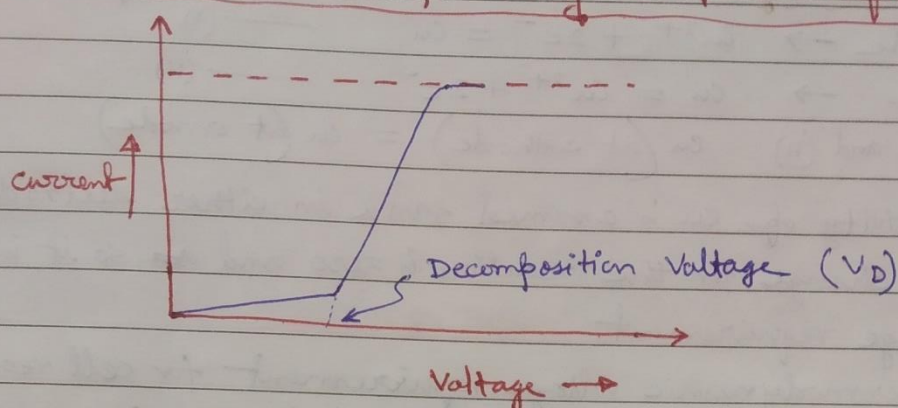 current
Decomposition Voltage (VD)
Voltage